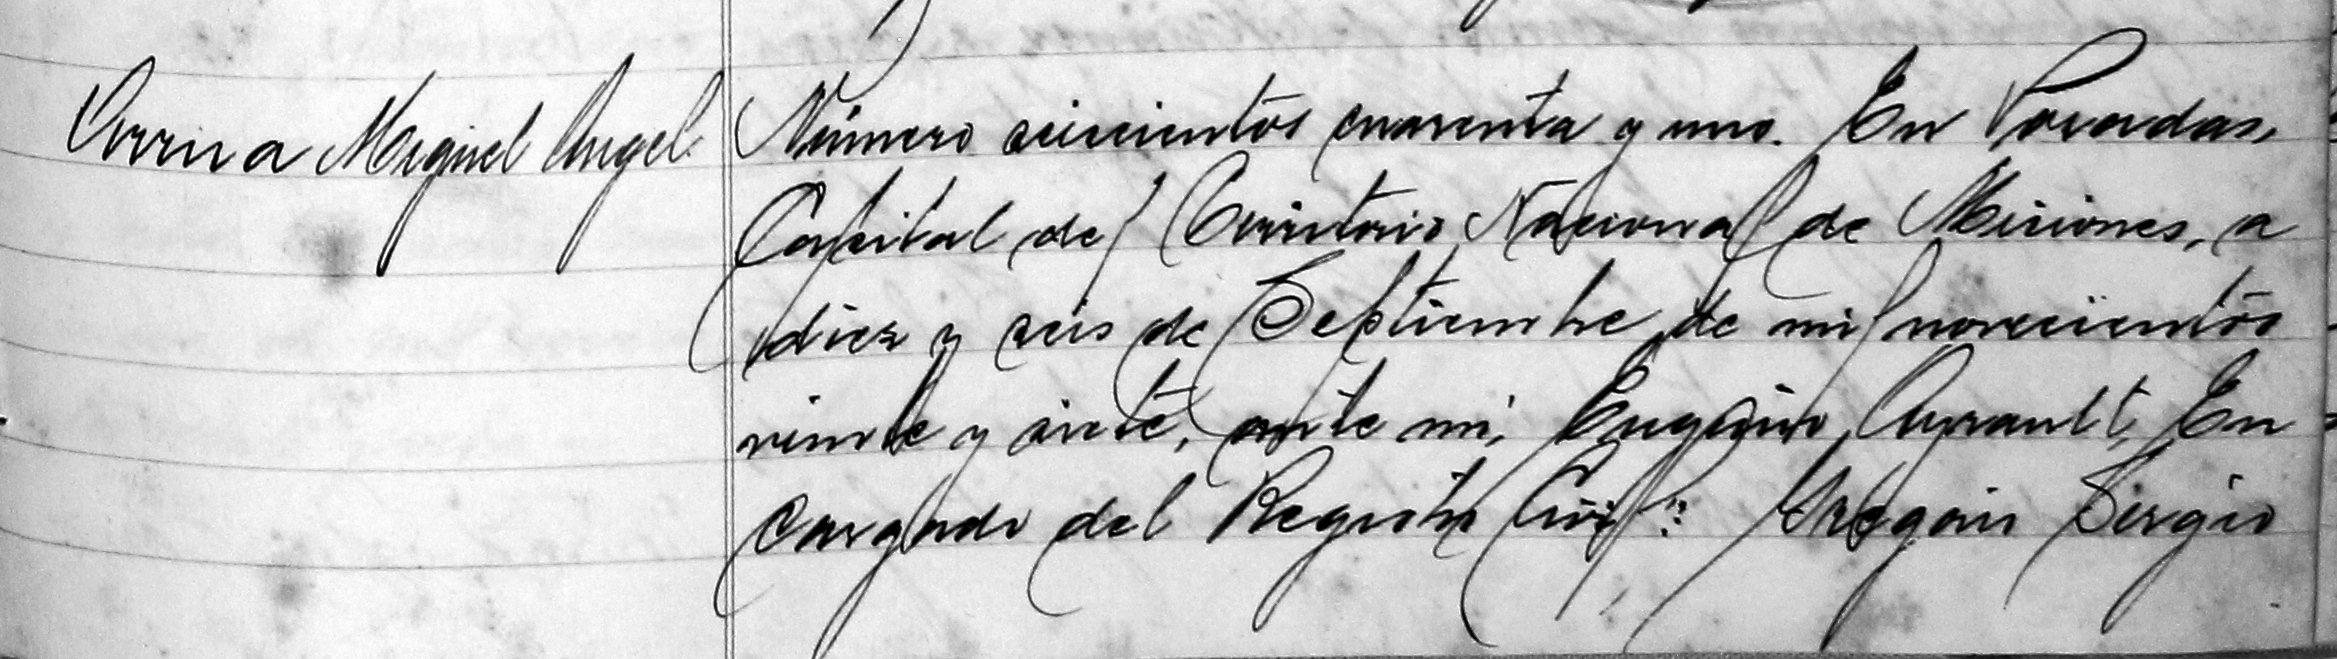 Miguel Angel
Número seiscientos cuarenta y uno. En Posadas,
Capital del Territorio Nacional de Misiones, a
diez y seis de Septiembre de mil novecientos
veinte y siete, ante mi, Eugenio Ayrault, En
cargado del Registro Civil: Gregorio Sergio